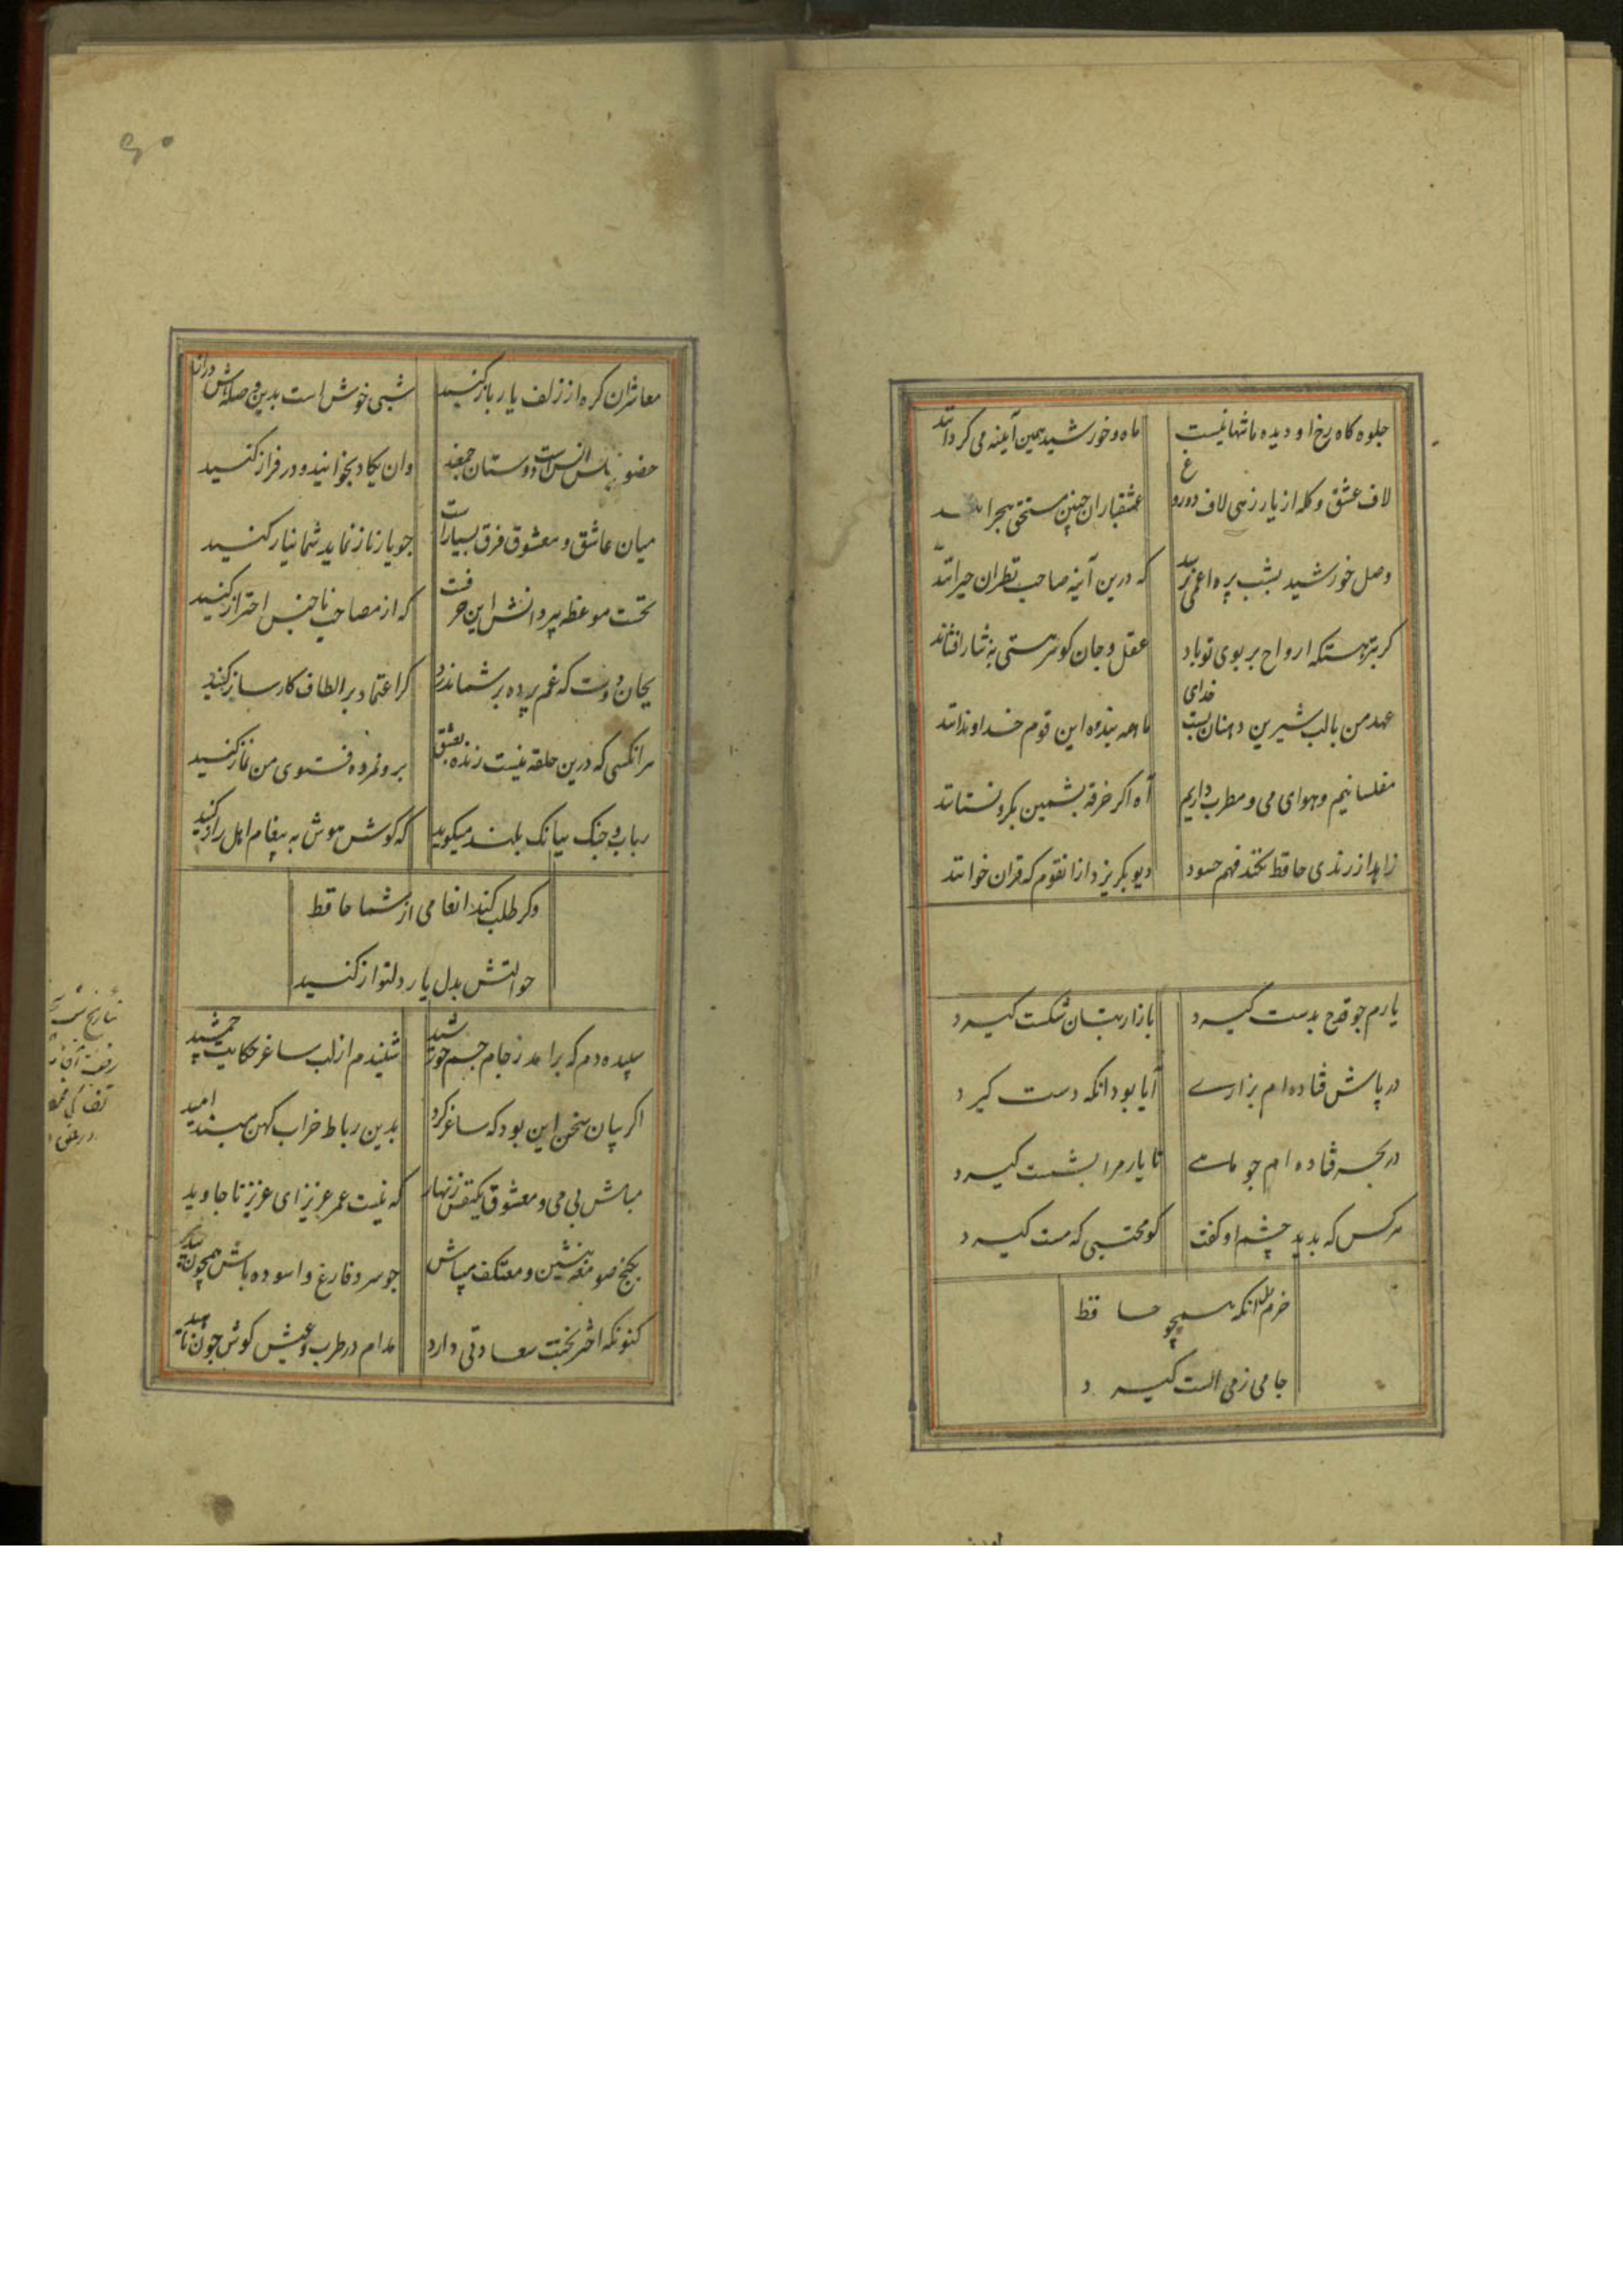 جلوه کاه رخ او دیده ما تنها نیست ماه و خورشید همین آینه می کردانند
لاف عشق و کله از یار زهی لاف دروغ عشقباران چنین مستحق هجرانند
وصل خورشید بشب پره اعمی نرسد که درین آینه صاحب نظران حیرانند
کر بنزهتکه ارواح بر بوی تو باد عقل و جان کوهر هستی به نثار افشانند
عهد من با لب شیرین دهنان بست خدای ما همه بنده و این قوم خداوندانند
مفلسانیم و هوای می و مطرب داریم آه اکر خرقه بشمین بکرو نستانند
زاهد از رندی حافظ نکند فهم جسود دیو بکریزد از انقوم که قران خوانند
یارم جو قدح بدست کیرد بازار بتان شکست کیرد
در پاش فتاده ام بزارے آیا بود انکه دست کیرد
در بحر فتاده ام جو ماهے تا یار مرا بشست کیرد
هر کس که بدید چشم او کفت کو محتسبی که مست کیرد
خرم دل انکه همچو حافظ
جامی ز می الست کیرد
معاشران کره از زلف یار باز کنید شبی خوش است بدین وصله اش دراز
حضور مجلس انس است و دوستان جمعند وان یکاد بخوانید و در فراز کنید
میان عاشق و معشوق فرق بسیار است جو یار ناز نماید شما نیاز کنید
نخست موعظه پیر دانش این حرفت که از مصاحب ناجنس احتراز کنید
بجان دوست که غم پرده بر شما ندرد کر اعتماد بر الطاف کارساز کنید
هر انکسی که درین حلقه نیست زنده بعشق برو نمرده فتوی من نماز کنید
رباب و جنک ببانک بلند میکوید که کوش هوش به پیغام اهل راز کنید
وکر طلب کند انعامی از شما حافظ
حوالتش بدل یار دلنواز کنید
سپیده دم که برامد ز جام جسم خورشید شنیدم از لب ساغر حکایت جمشید
اکر بیان سخن این بود که ساغر کرد بدین رباط خراب کهن مبند امید
مباش بی می و معشوق یکنفس زنهار که نیست عمر عزیز ای عزیز تا جاوید
بکنج صومعه منشین و معتکف میباش جو سرو فارغ و اسوده باش همچون بید
کنونکه اختر بختت سعادتی دارد مدام در طرب و عیش کوش چون ناهید